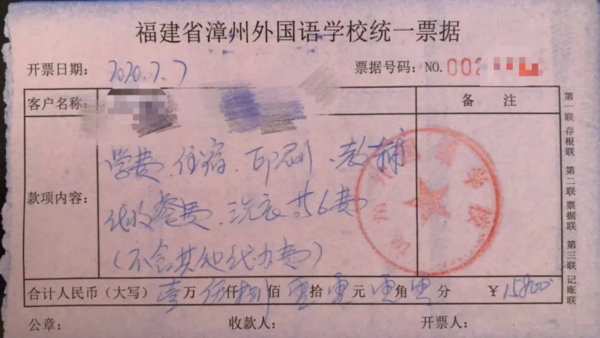 福建省漳州外国语学校统一票据
开票日期： 2020.7.7
票据号码：NO.002
客户名称：
备 注
款项内容：
学费、住宿、印刷、教辅
代收餐费、洗衣共6费
（不含其他代办费）
合计人民币（大写）壹万伍仟捌佰零拾零元零角零分 ￥15800
公章： 收款人： 开票人：
第一联 存根联 第二联 票据联 第三联 记账联